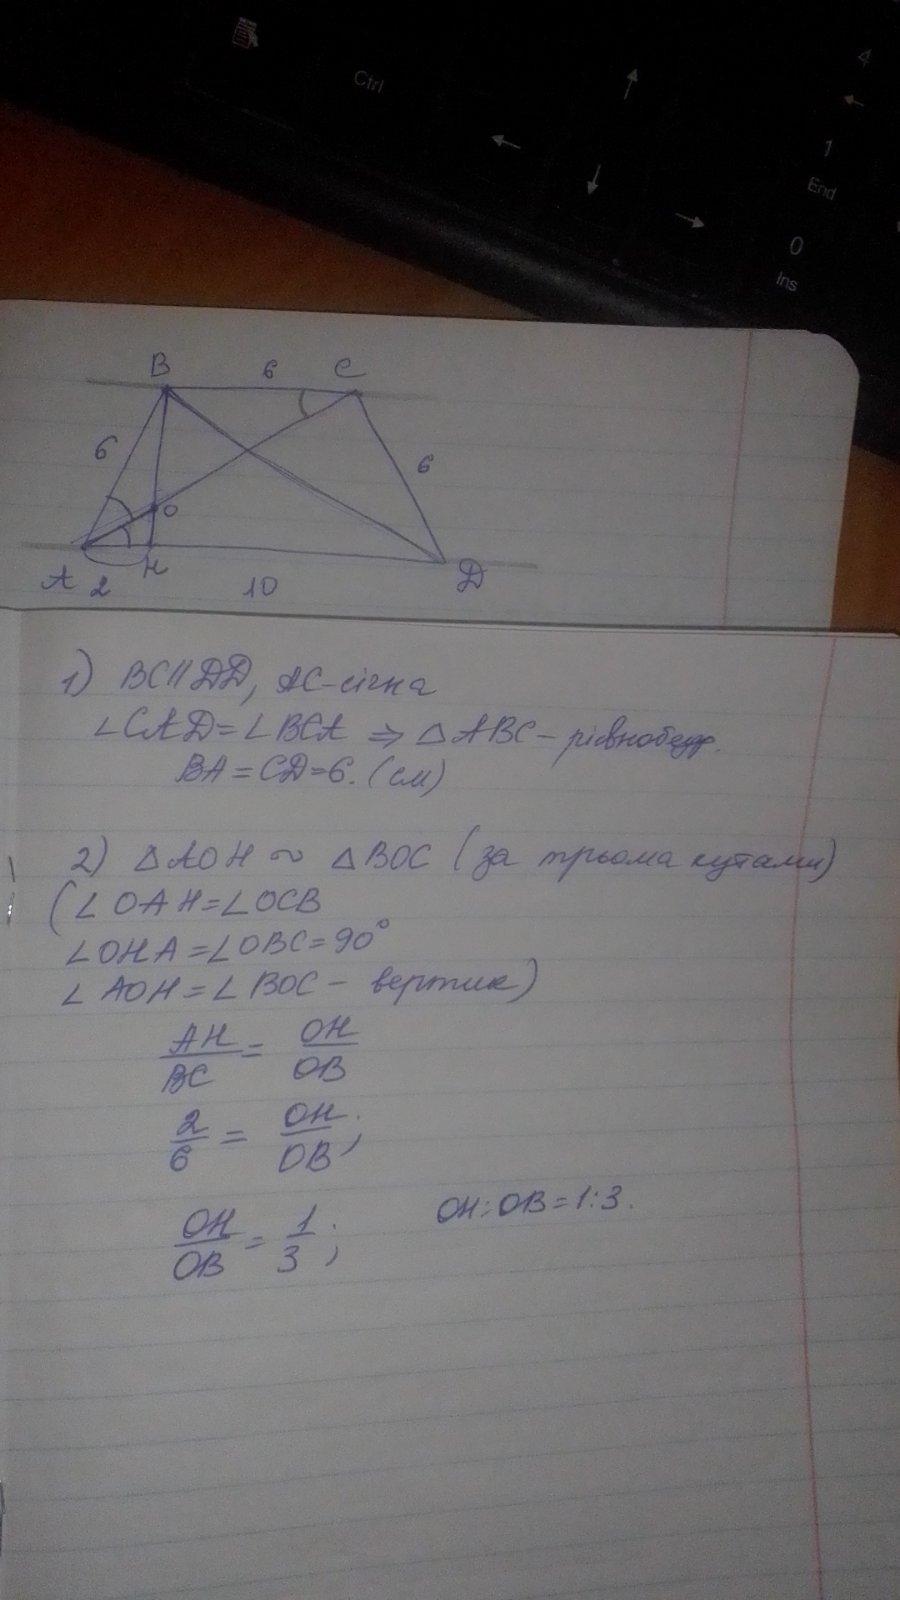 Ctrl
4
1
End
0
Ins
B 6 C
6
6
O
A 2 H 10 D
1) BC∥DD, AC-січна
∠CAD=∠BCA ⇒ △ABC - рівнобедр.
BA=CD=6.(см)
2) △AOH ~ △BOC (за трьома кутами)
(∠OAH=∠OCB
∠OHA=∠OBC=90°
∠AOH=∠BOC - вертик)
AH/BC = OH/OB
2/6 = OH/OB;
OH/OB = 1/3; OH:OB=1:3.